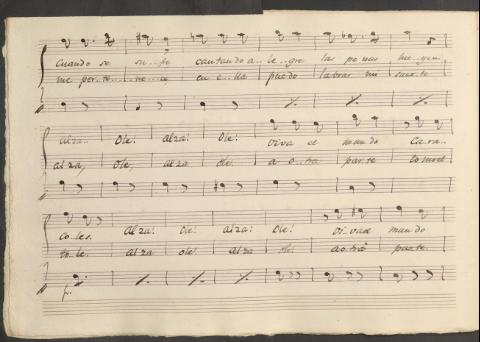 cuando se su..fre cantando a..le..gre las penas
me per..te..ne..ce puedo labrar mi suer..te
alza.. Ole! alza! Ole! viva el mundo Cara..
alza, Ole, alza ole! a o..tra par..te
co..les. alza! Ole! alza! Ole! vi..va el mundo
to..le. alza ole! alza ole! a otra parte.
p.